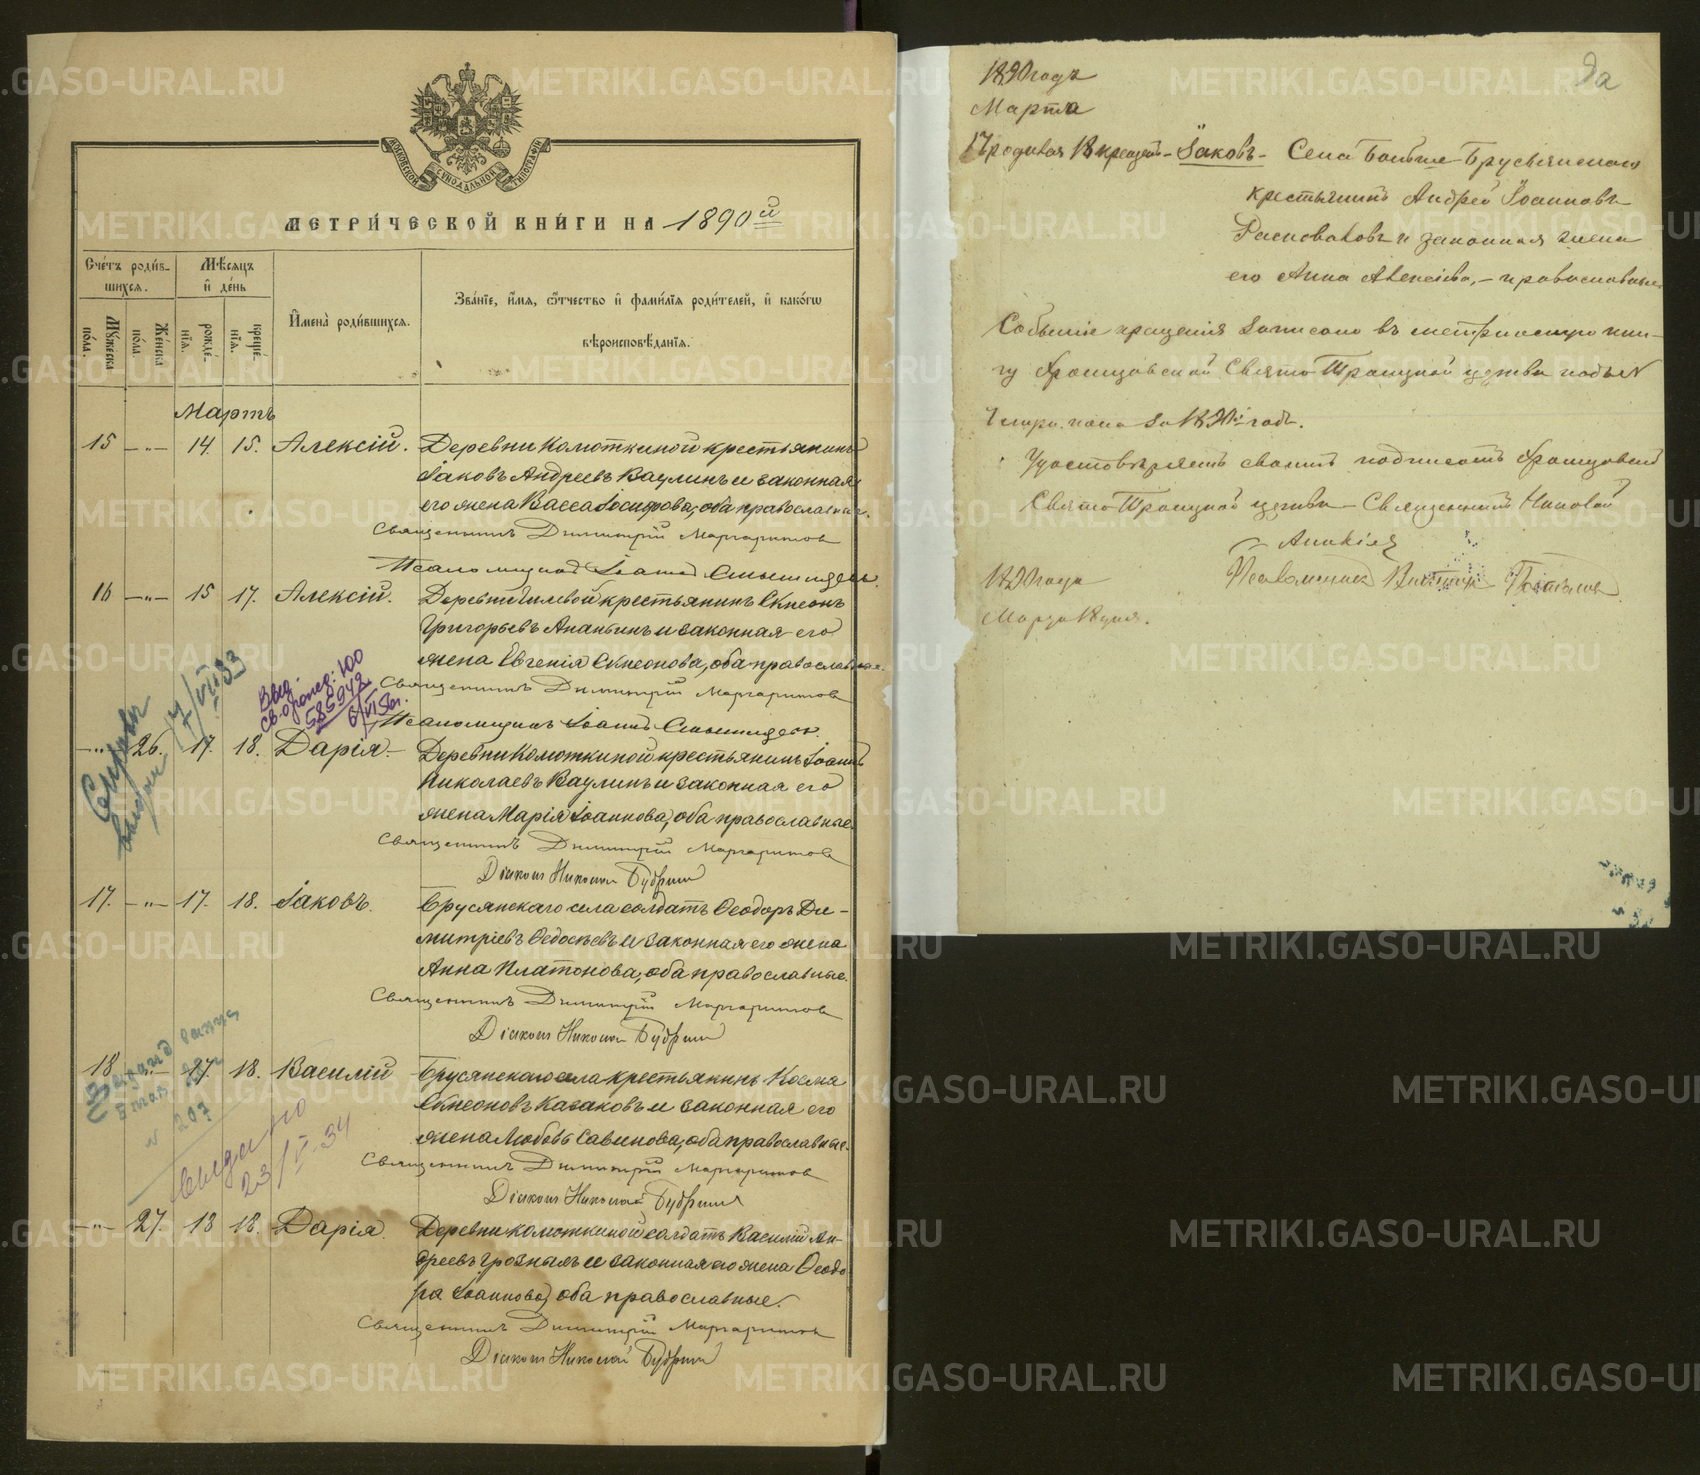 МОСКОВСКОЙ СѴНОДАЛЬНОЙ ТИПОГРАФІИ
МЕТРИ́ЧЕСКОЙ КНИ́ГИ НА 1890й
Сче́тъ роди́в-
шихся.
Мѣ́сяцъ
и҆ де́нь
И҆мена̀ роди́вшихся.
Зва́нїе, и҆́мя, ѻ҆́тчество и҆ фами́лїя роди́телей, и҆ како́гѡ
вѣроисповѣ́данїя.
Мꙋ́жеска по́ла.
Же́нска по́ла.
рожде́-нїя.
креще́-нїя.
Мартъ
15 -„- 14. 15. Алексій. Деревни Комоткиной крестьянинъ
Іаковъ Андреевъ Ваулинъ и законная
его жена Васса Іосифова, оба православные.
Священникъ Димитрій Маргаритовъ
Псаломщикъ Іоаннъ
16 -„- 15 17. Алексій. Деревни крестьянинъ Симеонъ
Григорьевъ Ананьинъ и законная его
жена Евгенія Симеонова, оба православные.
Священникъ Димитрій Маргаритовъ
Псаломщикъ Іоаннъ
-„- 26. 17. 18. Дарія. Деревни Комоткиной крестьянинъ Іоаннъ
Николаевъ Ваулинъ и законная его
жена Марія Іоаннова, оба православные.
Священникъ Димитрій Маргаритовъ
Діаконъ Николай Будринъ
17. -„- 17. 18. Іаковъ. Брусянскаго села солдатъ Ѳеодоръ Ди-
митріевъ Ѳедосѣевъ и законная его жена
Анна Платонова, оба православные.
Священникъ Димитрій Маргаритовъ
Діаконъ Николай Будринъ
18 -„- 17. 18. Василій Брусянскаго села крестьянинъ Косма
Симеоновъ Казаковъ и законная его
жена Любовь Савинова, оба православные.
Священникъ Димитрій Маргаритовъ
Діаконъ Николай Будринъ
-„- 27. 18 18. Дарія. Деревни Комоткиной солдатъ Василій Ан-
дреевъ Грозныхъ и законная его жена Ѳеодо-
ра Іоаннова, оба православные.
Священникъ Димитрій Маргаритовъ
Діаконъ Николай Будринъ
17/VII 33
100
585942
6/VI
N 207
выдано
23/V-34
9а
1890 годъ
Марта
17 родился 18 крещенъ - Іаковъ - Села Больше-Брусянскаго
крестьянинъ Андрей Іоанновъ
и законная жена
его Анна Алексіева, - православные
Событіе крещенія записано въ метрическую кни-
гу Свято Троицкой церкви подъ N
7 муж. пола за 1890й годъ.
Удостовѣряетъ своимъ подписомъ
Свято Троицкой церкви Священникъ Николай
1890 года
Марта 18 дня.
Псаломщикъ Викторъ
METRIKI.GASO-URAL.RU